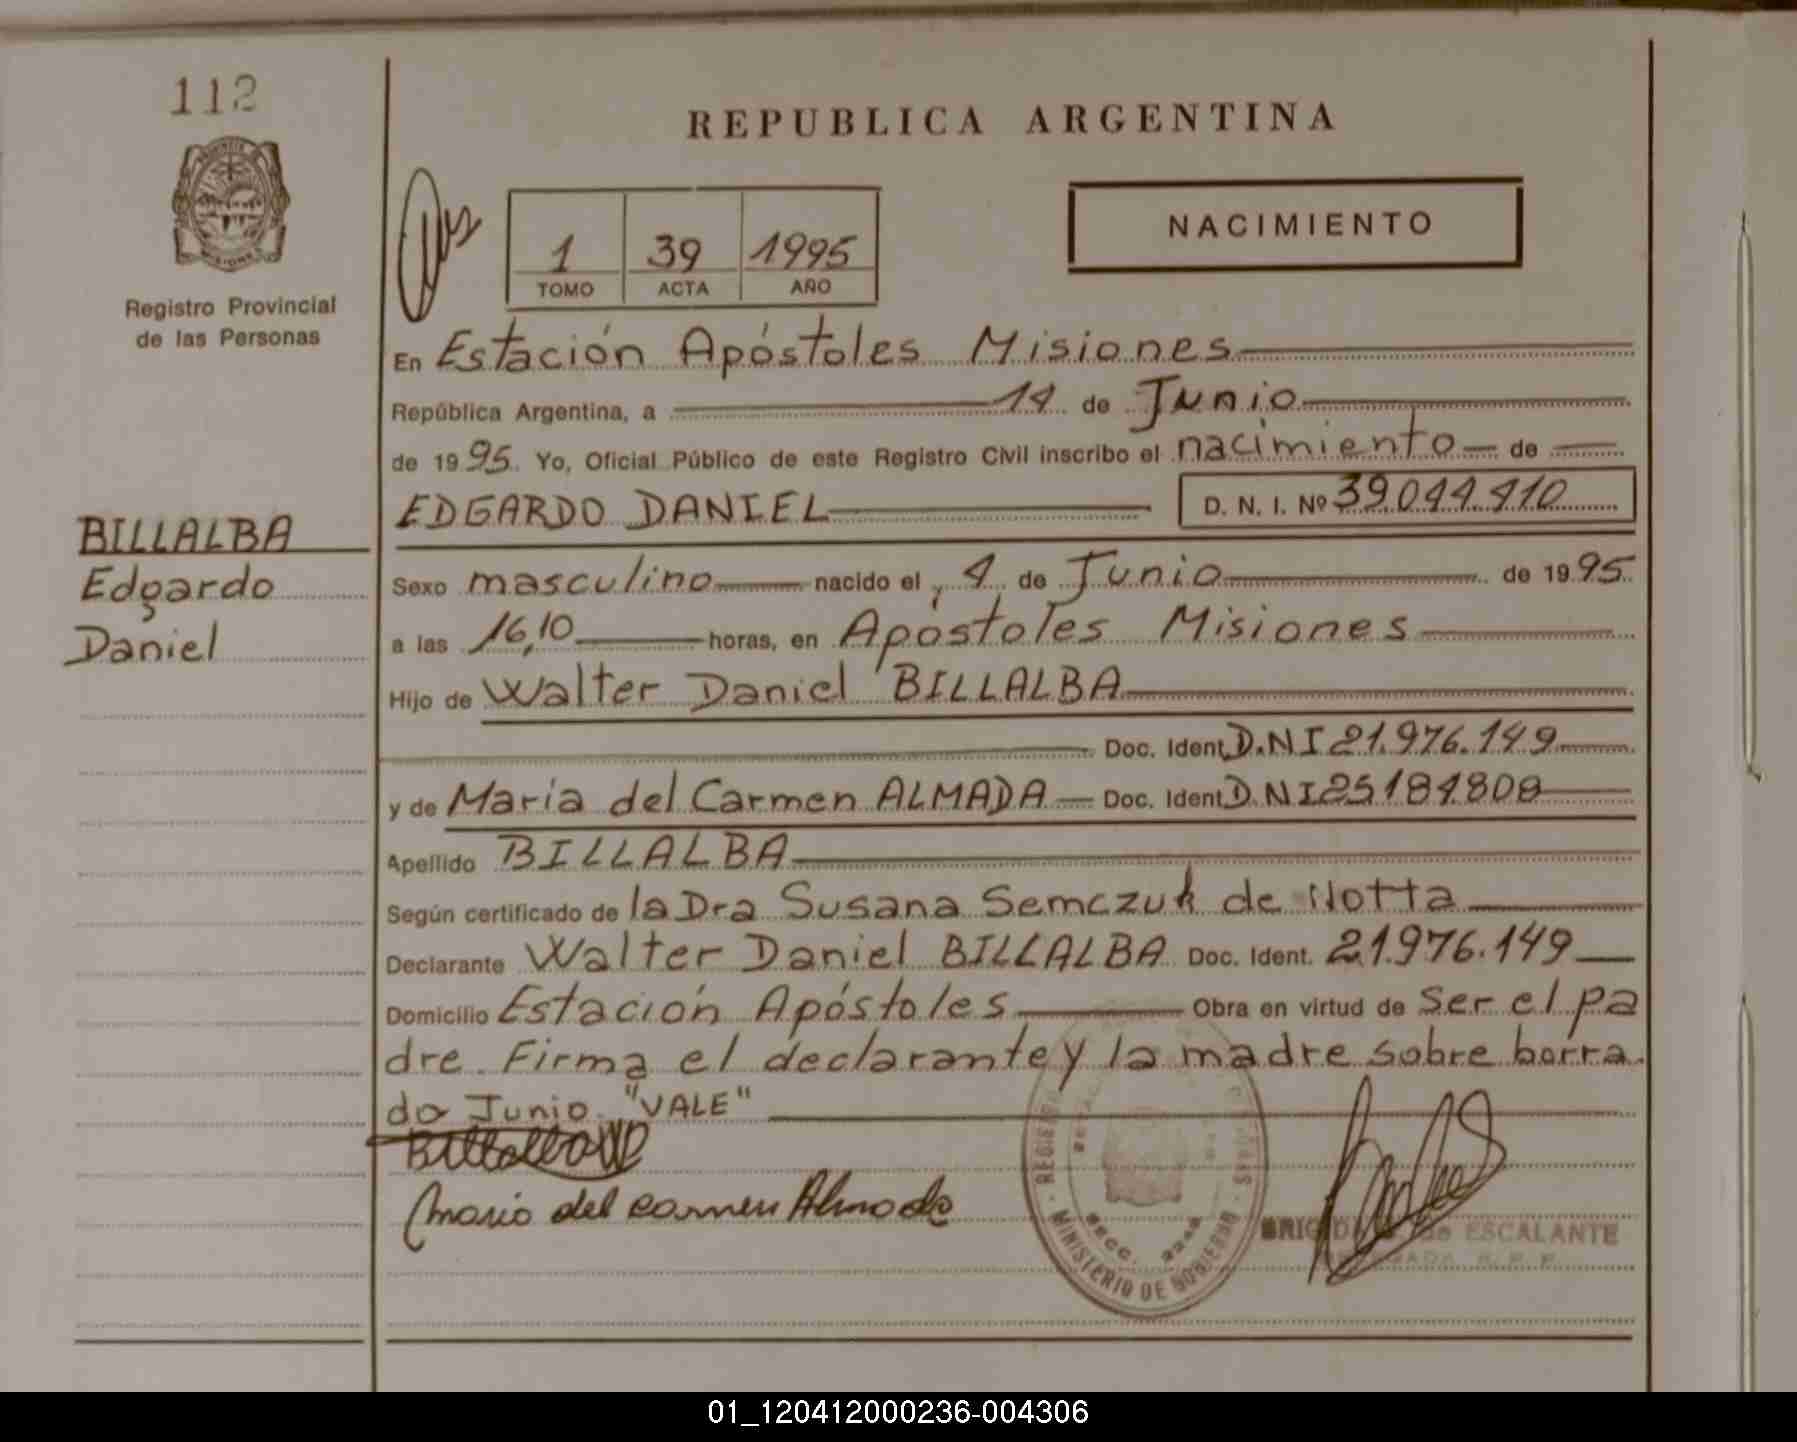 112
REPUBLICA ARGENTINA
NACIMIENTO
1 39 1995
TOMO ACTA AÑO
Registro Provincial
de las Personas
En Estación Apóstoles Misiones
República Argentina, a 14 de Junio
de 1995. Yo, Oficial Público de este Registro Civil inscribo el nacimiento de
EDGARDO DANIEL D. N. I. Nº 39.044.410
BILLALBA
Edgardo
Daniel
Sexo masculino nacido el 4 de Junio de 1995
a las 16,10 horas, en Apóstoles Misiones
Hijo de Walter Daniel BILLALBA
Doc. Ident. D.N I 21.976.149
y de María del Carmen ALMADA Doc. Ident. D.N I 25184808
Apellido BILLALBA
Según certificado de la Dra Susana Semczuk de Notta
Declarante Walter Daniel BILLALBA Doc. Ident. 21.976.149
Domicilio Estación Apóstoles Obra en virtud de Ser el pa
dre. Firma el declarante y la madre sobre borra
do Junio "VALE"
Billalba
Maria del Carmen Almada
MINISTERIO DE GOBIERNO
ESCALANTE
01_120412000236-004306